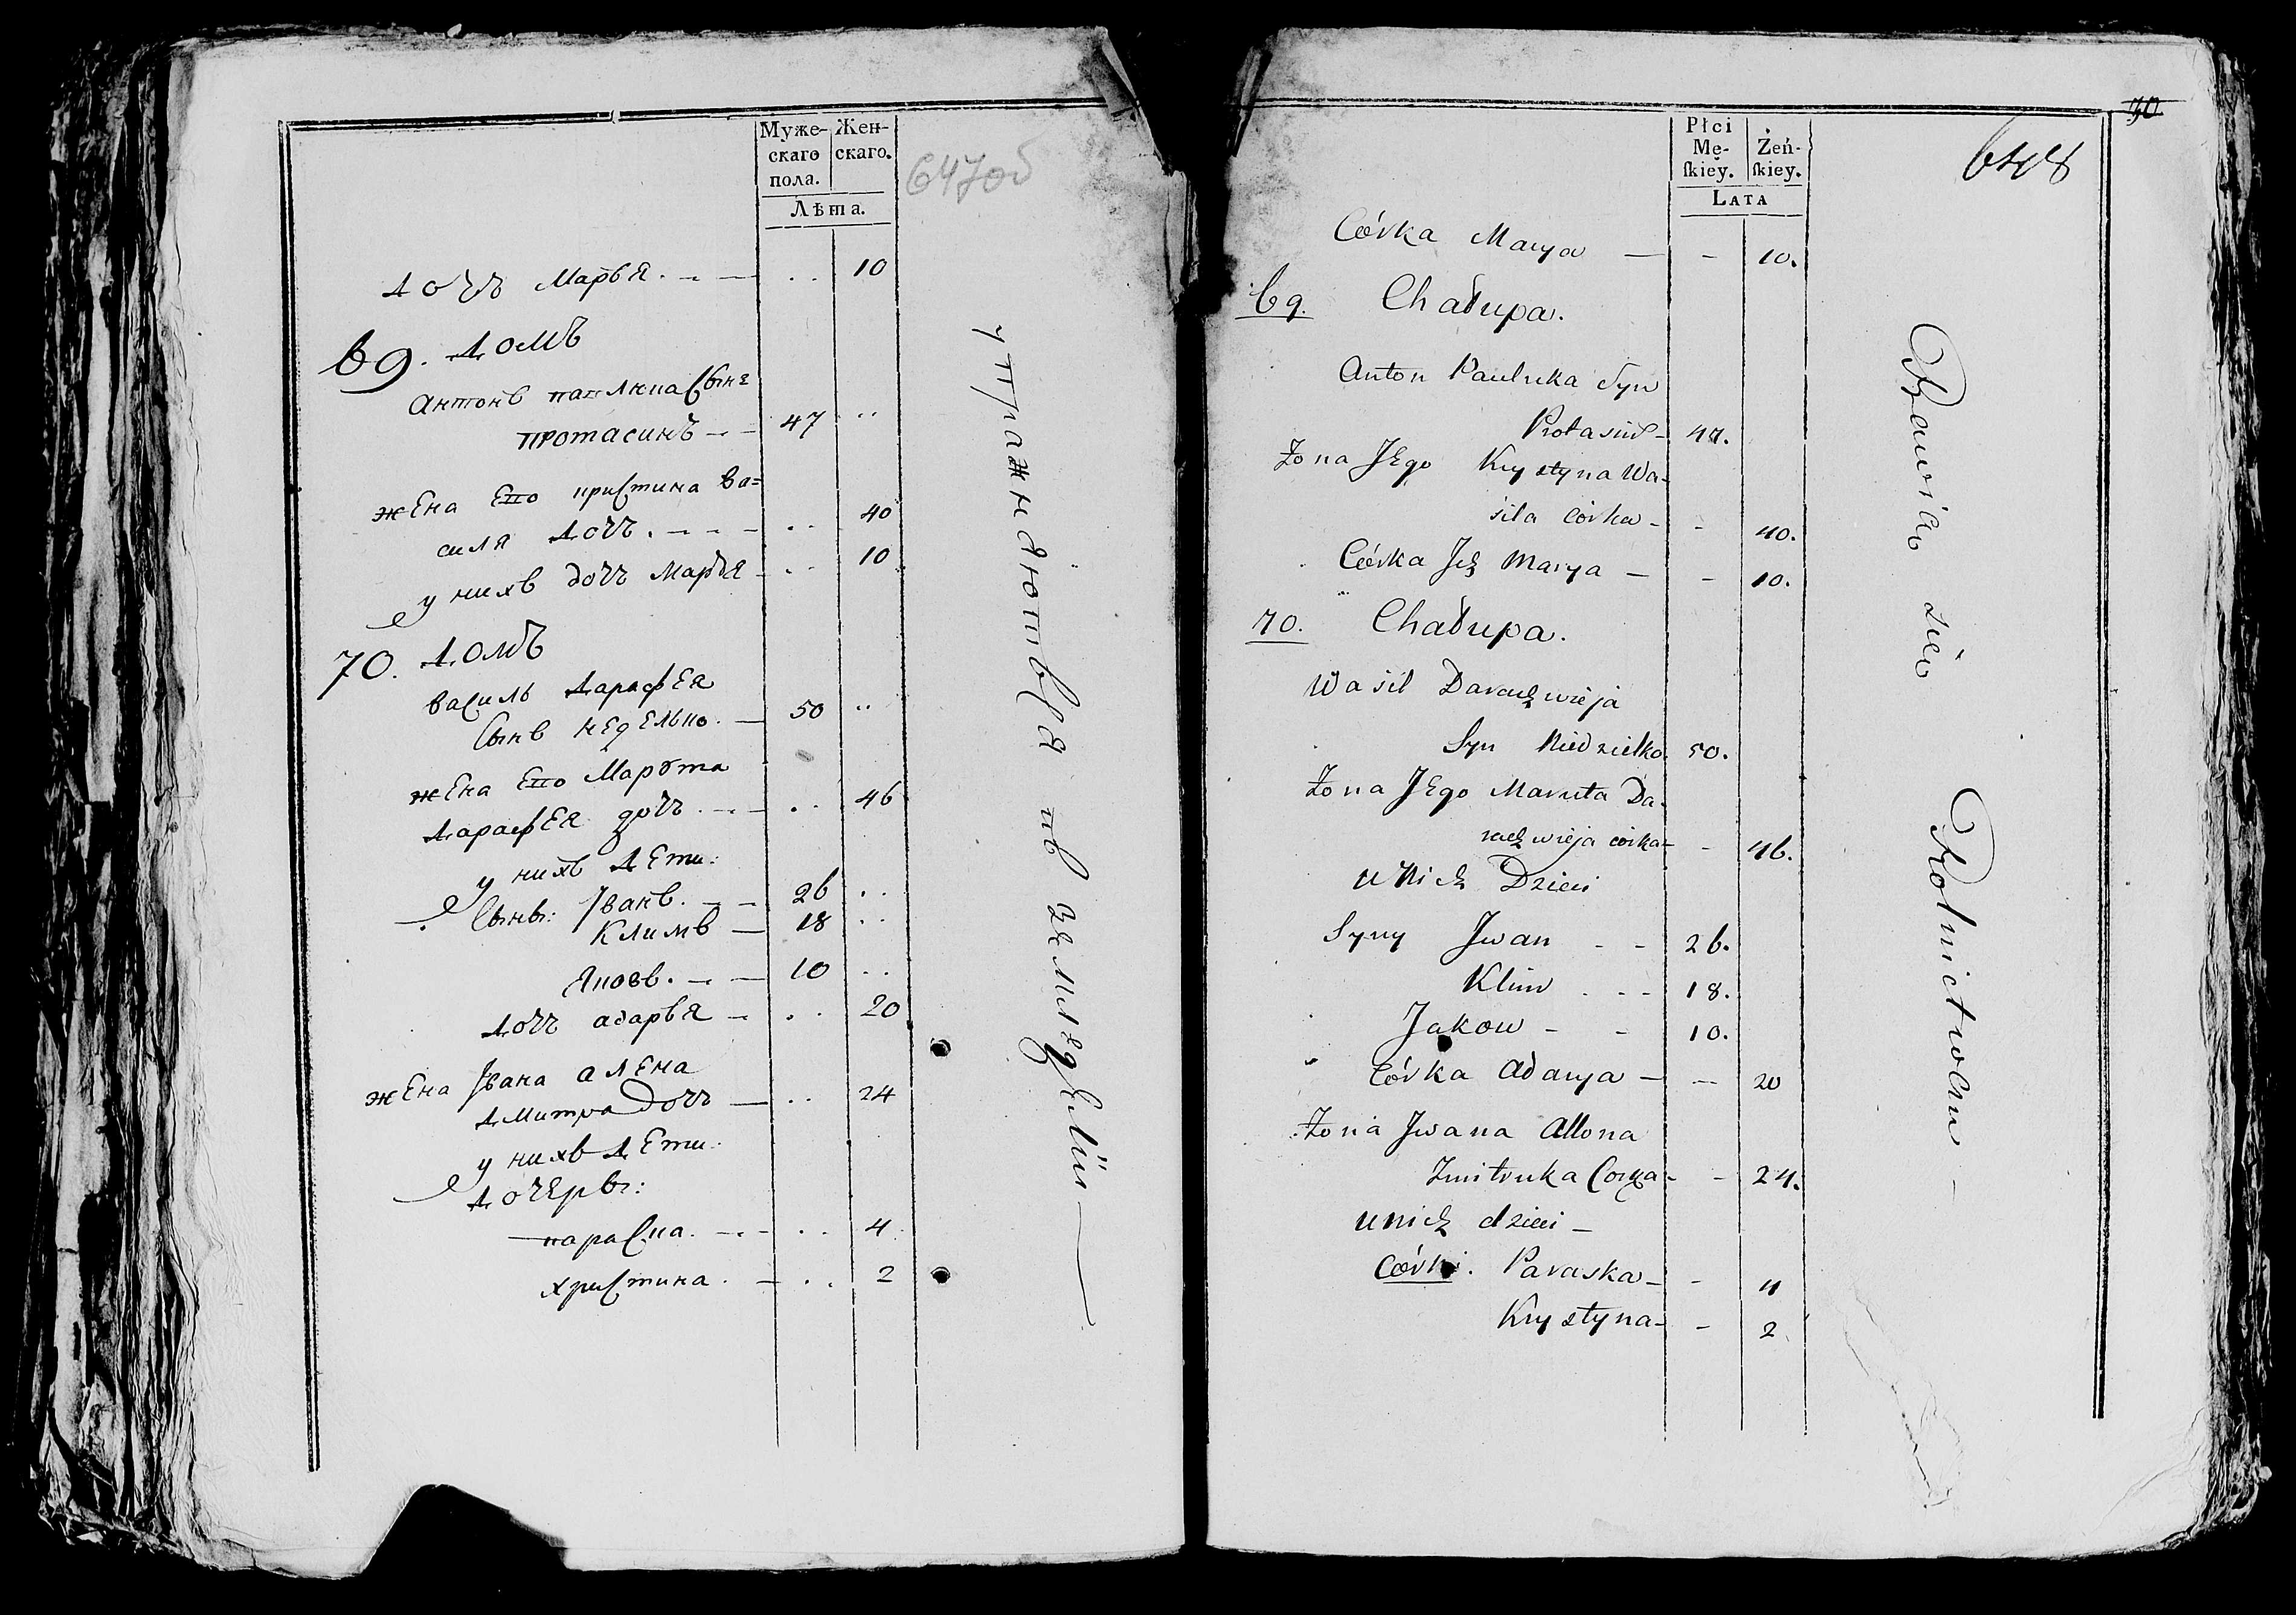 Муже-
скаго
пола.
Жен-
скаго.
Лѣта.
647об
дочь Марья. 10
69. домъ
Антонъ павлюка сынъ
протасикъ 47
жена Его кристина ва=
силя дочь. 40
у нихъ дочь Марья 10
70. домъ
василь дарафЕя
сынъ недЕлько. 50
жена Его Марута
дарафЕя дочь. 46
у нихъ дЕти:
сыны: Iванъ. 26
Климъ 18
Яковъ. 10
дочь адарья 20
жена Iвана алЕна
дмитра дочь 24
у нихъ дЕти:
дочеры:
параска. 4
христина. 2
упражняются въ земледЕлiи
70.
648
Płci
Mę-
ſkiey.
Żeń-
ſkiey.
LATA
Córka Marya 10.
69. Chałupa.
Anton Pauluka Syn
Protasik 47.
Żona Jego Krystyna Wa-
sila córka 40.
Córka Ich Marya 10.
70. Chałupa.
Wasil Darachwieja
Syn Niedzielko 50.
Żona Jego Maruta Da-
rachwieja córka 46.
u Nich Dzieci
Syny Jwan 26.
Klim 18.
Jakow 10.
Córka Adarya 20
Żona Jwana Allona
Zmitruka Corka 24.
u nich dzieci
Córki: Paraska 4
Krystyna 2
Bawią się Rolnictwem